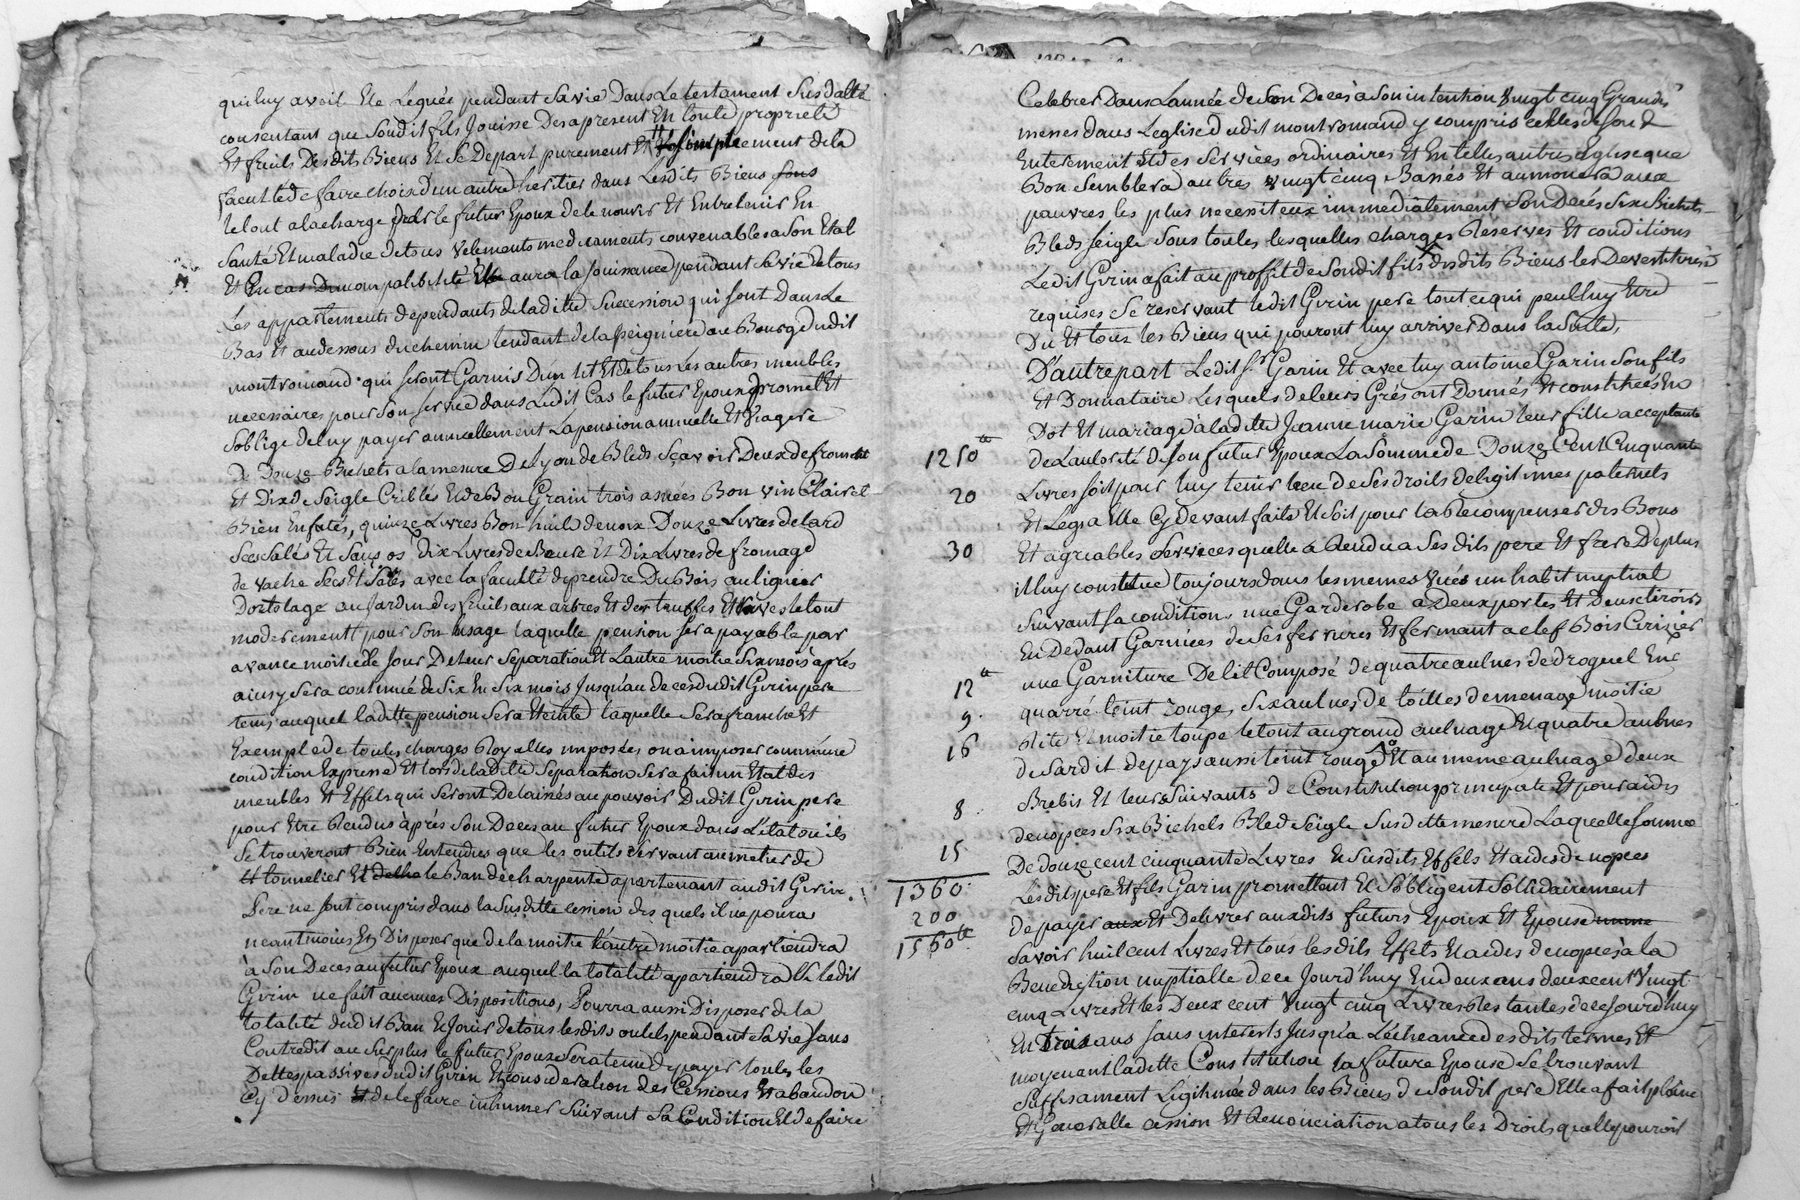 quiluy avoit Ete Legués pendant sa vie Dans Le testament Susdatté
consentant que Soudit fils Jouisse Des apresent En toute proprieté
Et fruits Desdits Biens Et Se Depart purement Et Simplement de la
faculté de faire choix d'un autre heritier dans Lesdits Biens sous
le tout a la charge par le futur Epoux de le nourir Et Entretenir En
Santé Et maladie de tous Vetements medicaments convenables a Son Etat
Et En cas Dincompatibilité Elle aura la Jouissance pendant Sa vie de tous
Les appartements dependants de laditte Succession qui sont Dans Le
Bas Et au dessous du chemin tendant de la peigniere au Bourg dudit
montromand qui seront Garnis D'un lit Et de tous Les autres meubles
necessaires pour Son service dans ledit Cas le futur Epoux promet Et
Soblige de luy payer annuellement La pension annuelle Et Viagere
de Douze Bichets a la mesure De Lyon de Bleds Sçavoir Deux de froment
Et Dix de Seigle Criblés Et de Bon Grain trois anées Bon vin Clairet
Bien Enfutés, quinze Livres Bon huile de noix Douze Livres de lard
Sec Salés Et Sans os Dix Livres de Beure Et Dix Livres de fromage
de vache Secs Et Salés avec la faculté de prendre Du Bois au lignier
Dortolage au Jardin des fruits aux arbres Et des truffes Et raves le tout
moderement pour Son usage laquelle pension sera payable par
avance moitié le Jour De leur Separation Et Lautre moitié Six mois après
ainsy Sera continué de Six En Six mois Jusqu'au deces dudit Girin pere
tems auquel laditte pension Sera Eteinte laquelle Sera franche Et
Exempte de toutes charges Royalles imposées ou a imposer comm̄e
condition Expresse Et lors de laditte Separation Sera fait un Etat des
meubles Et Effets qui Seront Delaissés au pouvoir Dudit Girin pere
pour Etre Rendus après Son Deces au futur Epoux dans L'état ou ils
Se trouveront Bien Entendus que les outils servant au metier de
tonnelier Et le Ban de charpente apartenant audit Girin
Pere ne sont compris dans la Susditte cession des quels il ne poura
neantmoins Disposer que de la moitié Lautre moitié apartiendra
à Son Deces au futur Epoux auquel la totalité apartiendra Si ledit
Girin ne fait aucunes Dispositions, Pourra aussi Disposer de la
totalité dudit Ban Et Jouir de tous lesdits outils pendant Sa vie Sans
Contredit au Surplus le futur Epoux Sera tenu de payer toutes les
Dettes passives dudit Girin En consideration des Cessions Et abandon
Cy dessus Et de le faire inhumer Suivant Sa Condition Et de faire
Celebrer Dans Lannée de Son Deces a Son intention Vingt cinq Grandes
messes dans Leglise dudit montromand y compris celles de son
Enterement Et des Services ordinaires Et En telles autres Eglise que
Bon Semblera autres Vingt cinq Basses Et aumonera aux
pauvres les plus necessiteux immediatement Son Decés Six Bichets
Bled Seigle Sous toutes lesquelles charges Reserves Et conditions
Ledit Girin a fait au proffit de Soudit fils desdits Biens les Devestitures
requises Se reservant ledit Girin pere tout ce qui peut luy Etre
Du Et tous les Biens qui pouront luy arriver Dans la Suitte,
D'autre part Ledit Sr Garin Et avec luy antoine Garin Son fils
Et Donnataire Lesquels de leurs Grés ont Donnés Et constitués En
Dot Et mariage à laditte Jeanne marie Garin leur fille acceptante
1250tt de Lautorité de Son futur Epoux La Somme de Douze Cent Cinquante
20 Livres soit pour luy tenir lieu de Ses droits de legitimes paternels
Et Legs a Elle Cy devant faits Et Soit pour la Recompenser des Bons
30 Et agreables Services quelle a Rendu a Ses dits pere Et frere De plus
il luy constitue toujours dans les memes Vües un habit nuptial
Suivant Sa condition, une Garderobe a Deux portes Et Deux tiroirs
En Dedant Garnies de Ses ferrures Et fermant a clef Bois Cerizier
12tt une Garniture De lit Composé de quatre aulnes de droguet En
9 quarré teint rouge, Six aulnes de toilles de menage moitié
16 Rite Et moitié toupe le tout au grand aulnage Et quatre aulnes
de Sardit de pays aussi teint rouge Et au meme aulnage deux
8 Brebis Et leurs Suivants de Constitution principale Et pour aides
de nopces Six Bichets Bled Seigle Susditte mesure Laquelle Somme
15 De douze cent cinquante Livres Et Susdits Effets Et aides de nopces
1360 Lesdits pere Et fils Garin promettent Et Sobligent Sollidairement
200 de payer aux Et Delivrer auxdits futurs Epoux Et Epouse
1560tt Savoir huit cent Livres Et tous les dits Effets Et aides de nopces a la
Benediction nuptialle de ce Jourd'huy En deux ans deux cent Vingt
cinq Livres Et les Deux cent Vingt cinq Livres Restantes de ce Jourd'huy
En trois ans sans interets Jusqu'a L'echeance desdits termes Et
moyenant laditte Constitution La future Epouse Se trouvant
Suffisament Legitimée dans les Biens de Soudit pere Elle a fait pleine
Et Generalle cession Et Renonciation a tous les Droits quelle pouroit